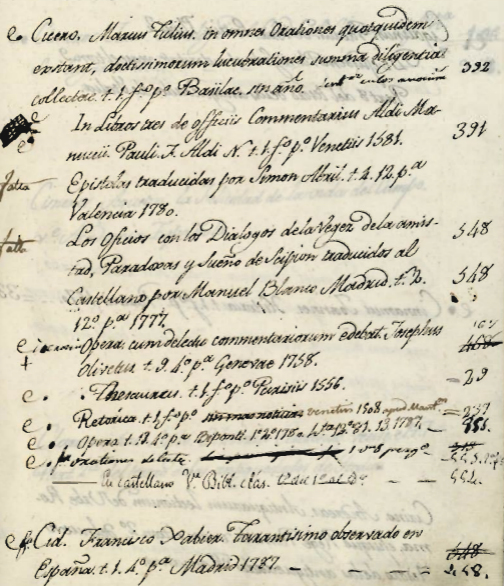 e Cicero, Marcus Tulius. in omnes Orationes quotquidem
exstant, doctissimorum lucubrationes summa diligentia
collectae. t. 1. fº pº Basileae, sin año. 392
e In Libros tres de officiis Commentarius Aldi Ma-
nuccii. Pauli. F. Aldi N. t. 1. fº pº Venetiis 1581. 391
falta Epistolas traducidas por Simon Abril. t. 4. 12. pª
Valencia 1780. 548
falta Los Oficios con los Dialogos de la Vegez de la amis-
tad, Paradoxas y Sueño de Scipion traducidos al
Castellano por Manuel Blanco Madrid. t. 2. 548
12º pª 1777.
e Opera. cum delectu commentariorum edebat. Josephus
Olivetus t. 9. 4º pª Genevae 1758.
e Thesaurus. t. 1. fº pº Parisiis 1556. - 29
e Retorica. t. 1. fº pº Venetiis = 237
e Opera t. 12. 4º pª Biponti. 1787.
e Orationes
En Castellano Vº Bibl. clas. - - 554.
e Cid. Francisco Xabier Tarantismo observado en
España. t. 1. 4º pª Madrid 1787. - - 248.